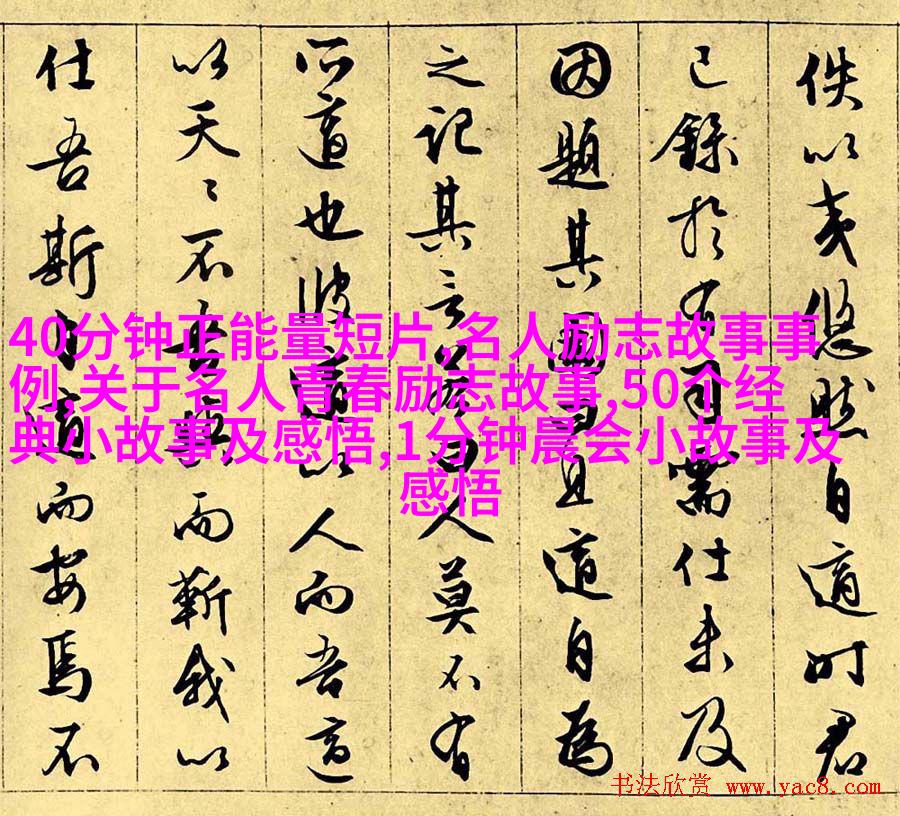 佚以夷悠然自適时君
已録於有司需仕未及
因題其圖且適自為
之記其言若曰人莫不有
所適也彼適以人而吾適
以天〻不吾與而靳我以
仕吾斯而安焉不
40分钟正能量短片,名人励志故事事
例,关于名人青春励志故事,50个经
典小故事及感悟,1分钟晨会小故事及
感悟
书法欣赏 www.yac8.com